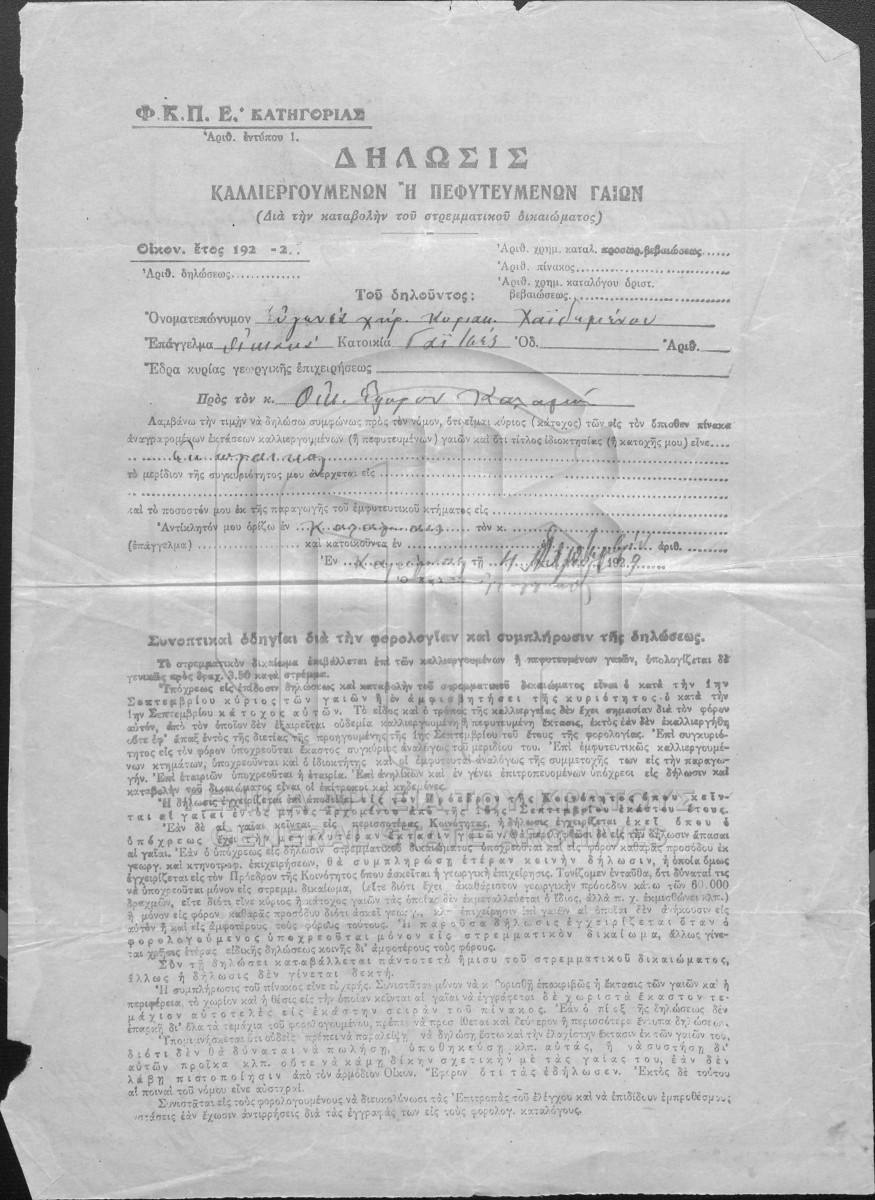 Φ.Κ.Π. Ε.' ΚΑΤΗΓΟΡΙΑΣ
Ἀριθ. ἐντύπου 1.
ΔΗΛΩΣΙΣ
ΚΑΛΛΙΕΡΓΟΥΜΕΝΩΝ Ἢ ΠΕΦΥΤΕΥΜΕΝΩΝ ΓΑΙΩΝ
(Διὰ τὴν καταβολὴν τοῦ στρεμματικοῦ δικαιώματος)
Οἰκον. ἔτος 192 -2
Ἀριθ. δηλώσεως
Ἀριθ. χρημ. καταλ. προσωρ. βεβαιώσεως
Ἀριθ. πίνακος
Ἀριθ. χρημ. καταλόγου ὁριστ.
βεβαιώσεως
Τοῦ δηλοῦντος:
Ὀνοματεπώνυμον χήρ. Κυριακ. Χαϊδεμένου
Ἐπάγγελμα οἰκιακά Κατοικία Ὁδ. Ἀριθ.
Ἕδρα κυρίας γεωργικῆς ἐπιχειρήσεως
Πρὸς τὸν κ. Οἰκ. Ἔφορον Καλαμῶν
Λαμβάνω τὴν τιμὴν νὰ δηλώσω συμφώνως πρὸς τὸν νόμον, ὅτι εἶμαι κύριος (κάτοχος) τῶν εἰς τὸν ὄπισθεν πίνακα
ἀναγραφομένων ἐκτάσεων καλλιεργουμένων (ἢ πεφυτευμένων) γαιῶν καὶ ὅτι τίτλος ἰδιοκτησίας (ἢ κατοχῆς μου) εἶνε
τὸ μερίδιον τῆς συγκυριότητος μου ἀνέρχεται εἰς
καὶ τὸ ποσοστόν μου ἐκ τῆς παραγωγῆς τοῦ ἐμφυτευτικοῦ κτήματος εἰς
Ἀντίκλητόν μου ὁρίζω ἐν Καλάμαις τὸν κ.
(ἐπάγγελμα) καὶ κατοικοῦντα ἐν ἀριθ.
Ἐν Καλάμαις τῇ 192 9
Συνοπτικαὶ ὁδηγίαι διὰ τὴν φορολογίαν καὶ συμπλήρωσιν τῆς δηλώσεως.
Τὸ στρεμματικὸν δικαίωμα ἐπιβάλλεται ἐπὶ τῶν καλλιεργουμένων ἢ πεφυτευμένων γαιῶν, ὑπολογίζεται δὲ
γενικῶς πρὸς δραχ. 3.50 κατὰ στρέμμα.
Ὑπόχρεως εἰς ἐπίδοσιν δηλώσεως καὶ καταβολὴν τοῦ στρεμματικοῦ δικαιώματος εἶναι ὁ κατὰ τὴν 1ην
Σεπτεμβρίου κύριος τῶν γαιῶν ἢ ἐν ἀμφισβητήσει τῆς κυριότητος ὁ κατὰ τὴν
1ην Σεπτεμβρίου κάτοχος αὐτῶν. Τὸ εἶδος καὶ ὁ τρόπος τῆς καλλιεργείας δὲν ἔχει σημασίαν διὰ τὸν φόρον
αὐτόν, ἀπὸ τὸν ὁποῖον δὲν ἐξαιρεῖται οὐδεμία καλλιεργουμένη ἢ πεφυτευμένη ἔκτασις, ἐκτὸς ἐὰν δὲν ἐκαλλιεργήθη
οὔτε ἐφ' ἅπαξ ἐντὸς τῆς διετίας τῆς προηγουμένης τῆς 1ης Σεπτεμβρίου τοῦ ἔτους τῆς φορολογίας. Ἐπὶ συγκυριό-
τητος εἰς τὸν φόρον ὑποχρεοῦται ἕκαστος συγκύριος ἀναλόγως τοῦ μεριδίου του. Ἐπὶ ἐμφυτευτικῶς καλλιεργουμέ-
νων κτημάτων, ὑποχρεοῦνται καὶ ὁ ἰδιοκτήτης καὶ οἱ ἐμφυτευταὶ ἀναλόγως τῆς συμμετοχῆς των εἰς τὴν παραγω-
γήν. Ἐπὶ ἑταιριῶν ὑποχρεοῦται ἡ ἑταιρία. Ἐπὶ ἀνηλίκων καὶ ἐν γένει ἐπιτροπευομένων ὑπόχρεοι εἰς δήλωσιν καὶ
καταβολὴν τοῦ δικαιώματος εἶναι οἱ ἐπίτροποι καὶ κηδεμόνες.
Ἡ δήλωσις ἐγχειρίζεται ἐπὶ ἀποδείξει εἰς τὸν Πρόεδρον τῆς Κοινότητος ὅπου κεῖν-
ται αἱ γαῖαι ἐντὸς μηνὸς ἀρχομένου ἀπὸ τῆς 1ης Σεπτεμβρίου ἑκάστου ἔτους.
Ἐὰν δὲ αἱ γαῖαι κεῖνται εἰς περισσοτέρας Κοινότητας, ἡ δήλωσις ἐγχειρίζεται ἐκεῖ ὅπου ὁ
ὑπόχρεως ἔχει τὴν μεγαλυτέραν ἔκτασιν γαιῶν, θὰ περιληφθῶσι δὲ εἰς τὴν δήλωσιν ἅπασαι
αἱ γαῖαι. Ἐὰν ὁ ὑπόχρεως εἰς δήλωσιν στρεμματικοῦ δικαιώματος ὑποχρεοῦται καὶ εἰς φόρον καθαρᾶς προσόδου ἐκ
γεωργ. καὶ κτηνοτροφ. ἐπιχειρήσεων, θὰ συμπληρώσῃ ἑτέραν κοινὴν δήλωσιν, ἡ ὁποία ὅμως
ἐγχειρίζεται εἰς τὸν Πρόεδρον τῆς Κοινότητος ὅπου ἀσκεῖται ἡ γεωργικὴ ἐπιχείρησις. Τονίζομεν ἐνταῦθα, ὅτι δύναταί τις
νὰ ὑποχρεοῦται μόνον εἰς στρεμμ. δικαίωμα, (εἴτε διότι ἔχει ἀκαθάριστον γεωργικὴν πρόσοδον κάτω τῶν 60.000
δραχμῶν, εἴτε διότι εἶνε κύριος ἢ κάτοχος γαιῶν τὰς ὁποίας δὲν ἐκμεταλλεύεται ὁ ἴδιος, ἀλλὰ π. χ. ἐκμισθώνει κλπ.)
ἢ μόνον εἰς φόρον καθαρᾶς προσόδου διότι ἀσκεῖ γεωργ. κλπ ἐπιχείρησιν ἐπὶ γαιῶν αἱ ὁποῖαι δὲν ἀνήκουσιν εἰς
αὐτὸν ἢ καὶ εἰς ἀμφοτέρους τοὺς φόρους τούτους. Ἡ παροῦσα δήλωσις ἐγχειρίζεται ὅταν ὁ
φορολογούμενος ὑποχρεοῦται μόνον εἰς στρεμματικὸν δικαίωμα, ἄλλως γίνε-
ται χρῆσις ἑτέρας εἰδικῆς δηλώσεως κοινῆς δι' ἀμφοτέρους τοὺς φόρους.
Σὺν τῇ δηλώσει καταβάλλεται πάντοτε τὸ ἥμισυ τοῦ στρεμματικοῦ δικαιώματος,
ἄλλως ἡ δήλωσις δὲν γίνεται δεκτή.
Ἡ συμπλήρωσις τοῦ πίνακος εἶνε εὐχερής. Συνιστᾶται μόνον νὰ καθορισθῇ ἐπακριβῶς ἡ ἔκτασις τῶν γαιῶν καὶ ἡ
περιφέρεια, τὸ χωρίον καὶ ἡ θέσις εἰς τὴν ὁποίαν κεῖνται αἱ γαῖαι νὰ ἐγγράφεται δὲ χωριστὰ ἕκαστον τε-
μάχιον αὐτοτελὲς εἰς ἑκάστην σειρὰν τοῦ πίνακος. Ἐὰν ὁ πίναξ τῆς δηλώσεως δὲν
ἐπαρκῇ δι' ὅλα τὰ τεμάχια τοῦ φορολογουμένου, πρέπει νὰ προστίθεται καὶ δεύτερον ἢ περισσότερα ἔντυπα δηλώσεων.
Ὑπομιμνήσκεται ὅτι οὐδεὶς πρέπει νὰ παραλείψῃ νὰ δηλώσῃ ἔστω καὶ τὴν ἐλαχίστην ἔκτασιν ἐκ τῶν γαιῶν του,
διότι δὲν θὰ δύναται νὰ πωλήσῃ, ὑποθηκεύσῃ κλπ. αὐτάς, ἢ νὰ συστήσῃ δι'
αὐτῶν προῖκα κλπ. οὔτε νὰ κάμῃ δίκην σχετικὴν μὲ τὰς γαίας του, ἐὰν δὲν
λάβῃ πιστοποίησιν ἀπὸ τὸν ἁρμόδιον Οἰκον. Ἔφορον ὅτι τὰς ἐδήλωσεν. Ἐκτὸς δὲ τούτου
αἱ ποιναὶ τοῦ νόμου εἶνε αὐστηραί.
Συνιστᾶται εἰς τοὺς φορολογουμένους νὰ διευκολύνωσι τὰς Ἐπιτροπὰς τοῦ ἐλέγχου καὶ νὰ ἐπιδίδουν ἐμπροθέσμους
ἐνστάσεις ἐὰν ἔχωσιν ἀντιρρήσεις διὰ τὰς ἐγγραφάς των εἰς τοὺς φορολογ. καταλόγους.